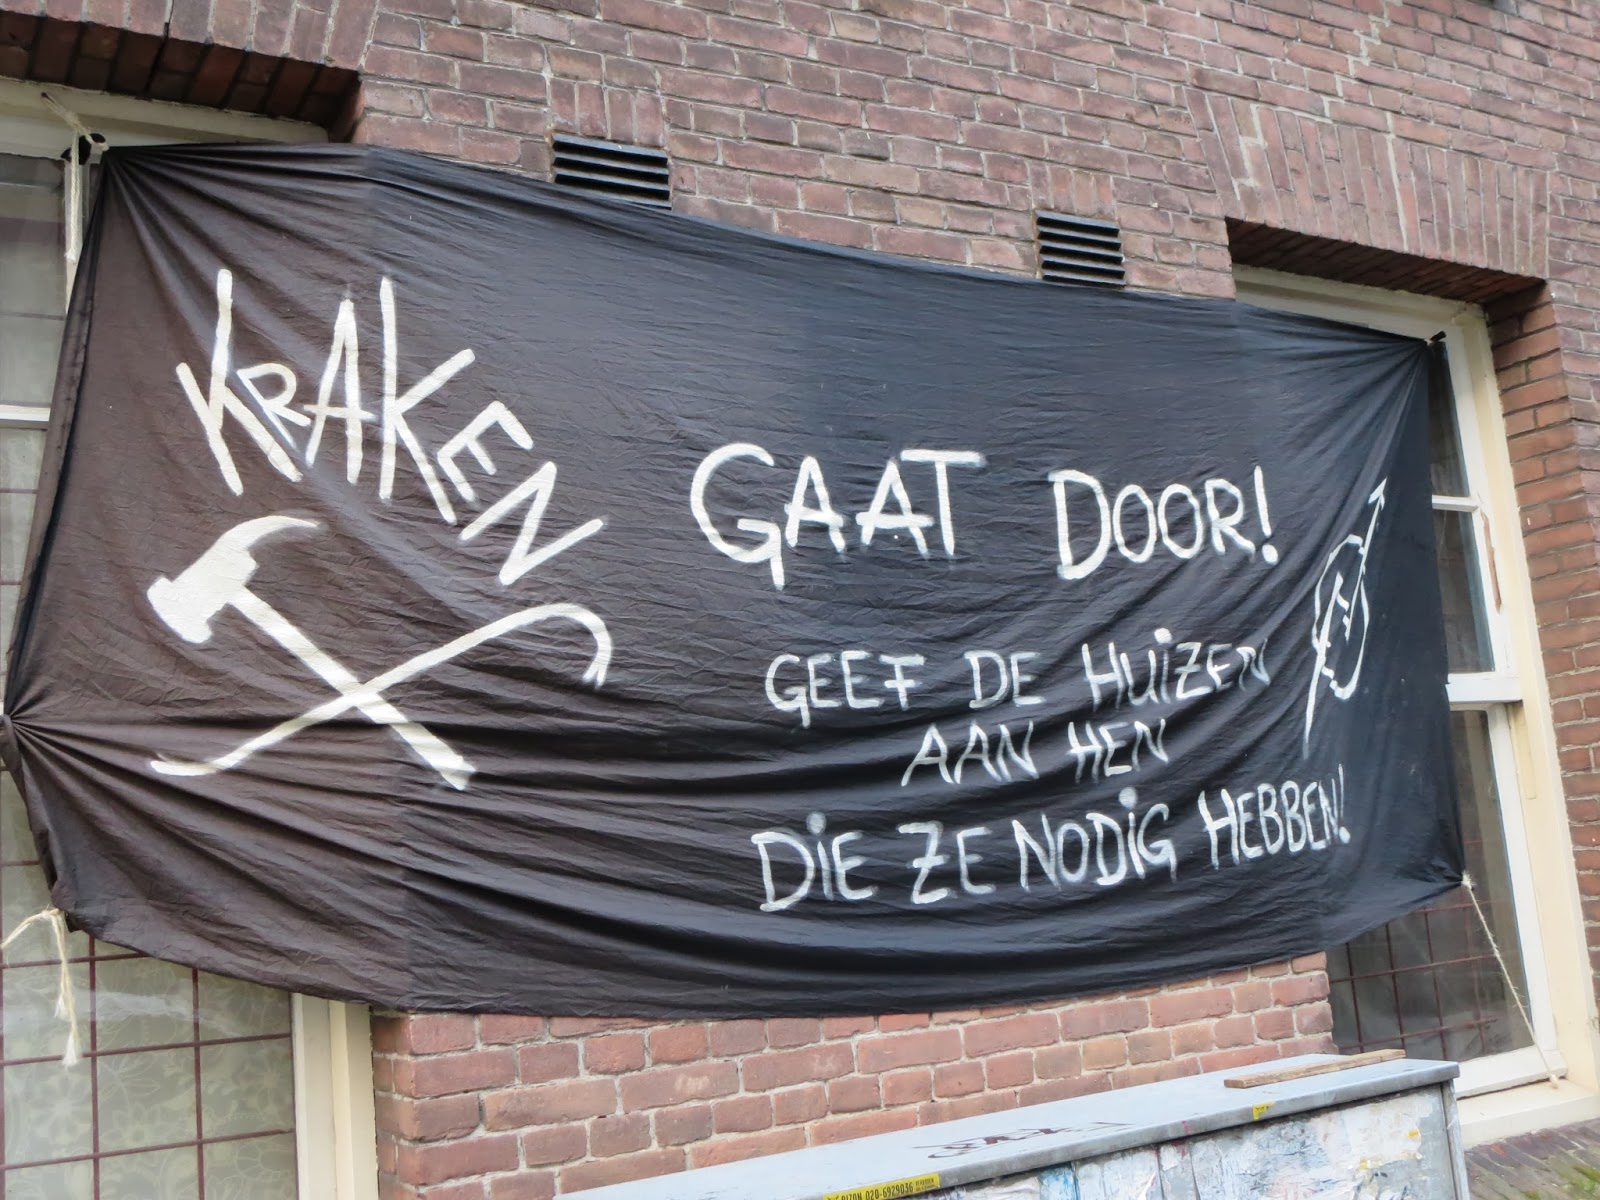 KRAKEN
GAAT DOOR!
GEEF DE HUIZEN
AAN HEN
DIE ZE NODIG HEBBEN!
020-6929036